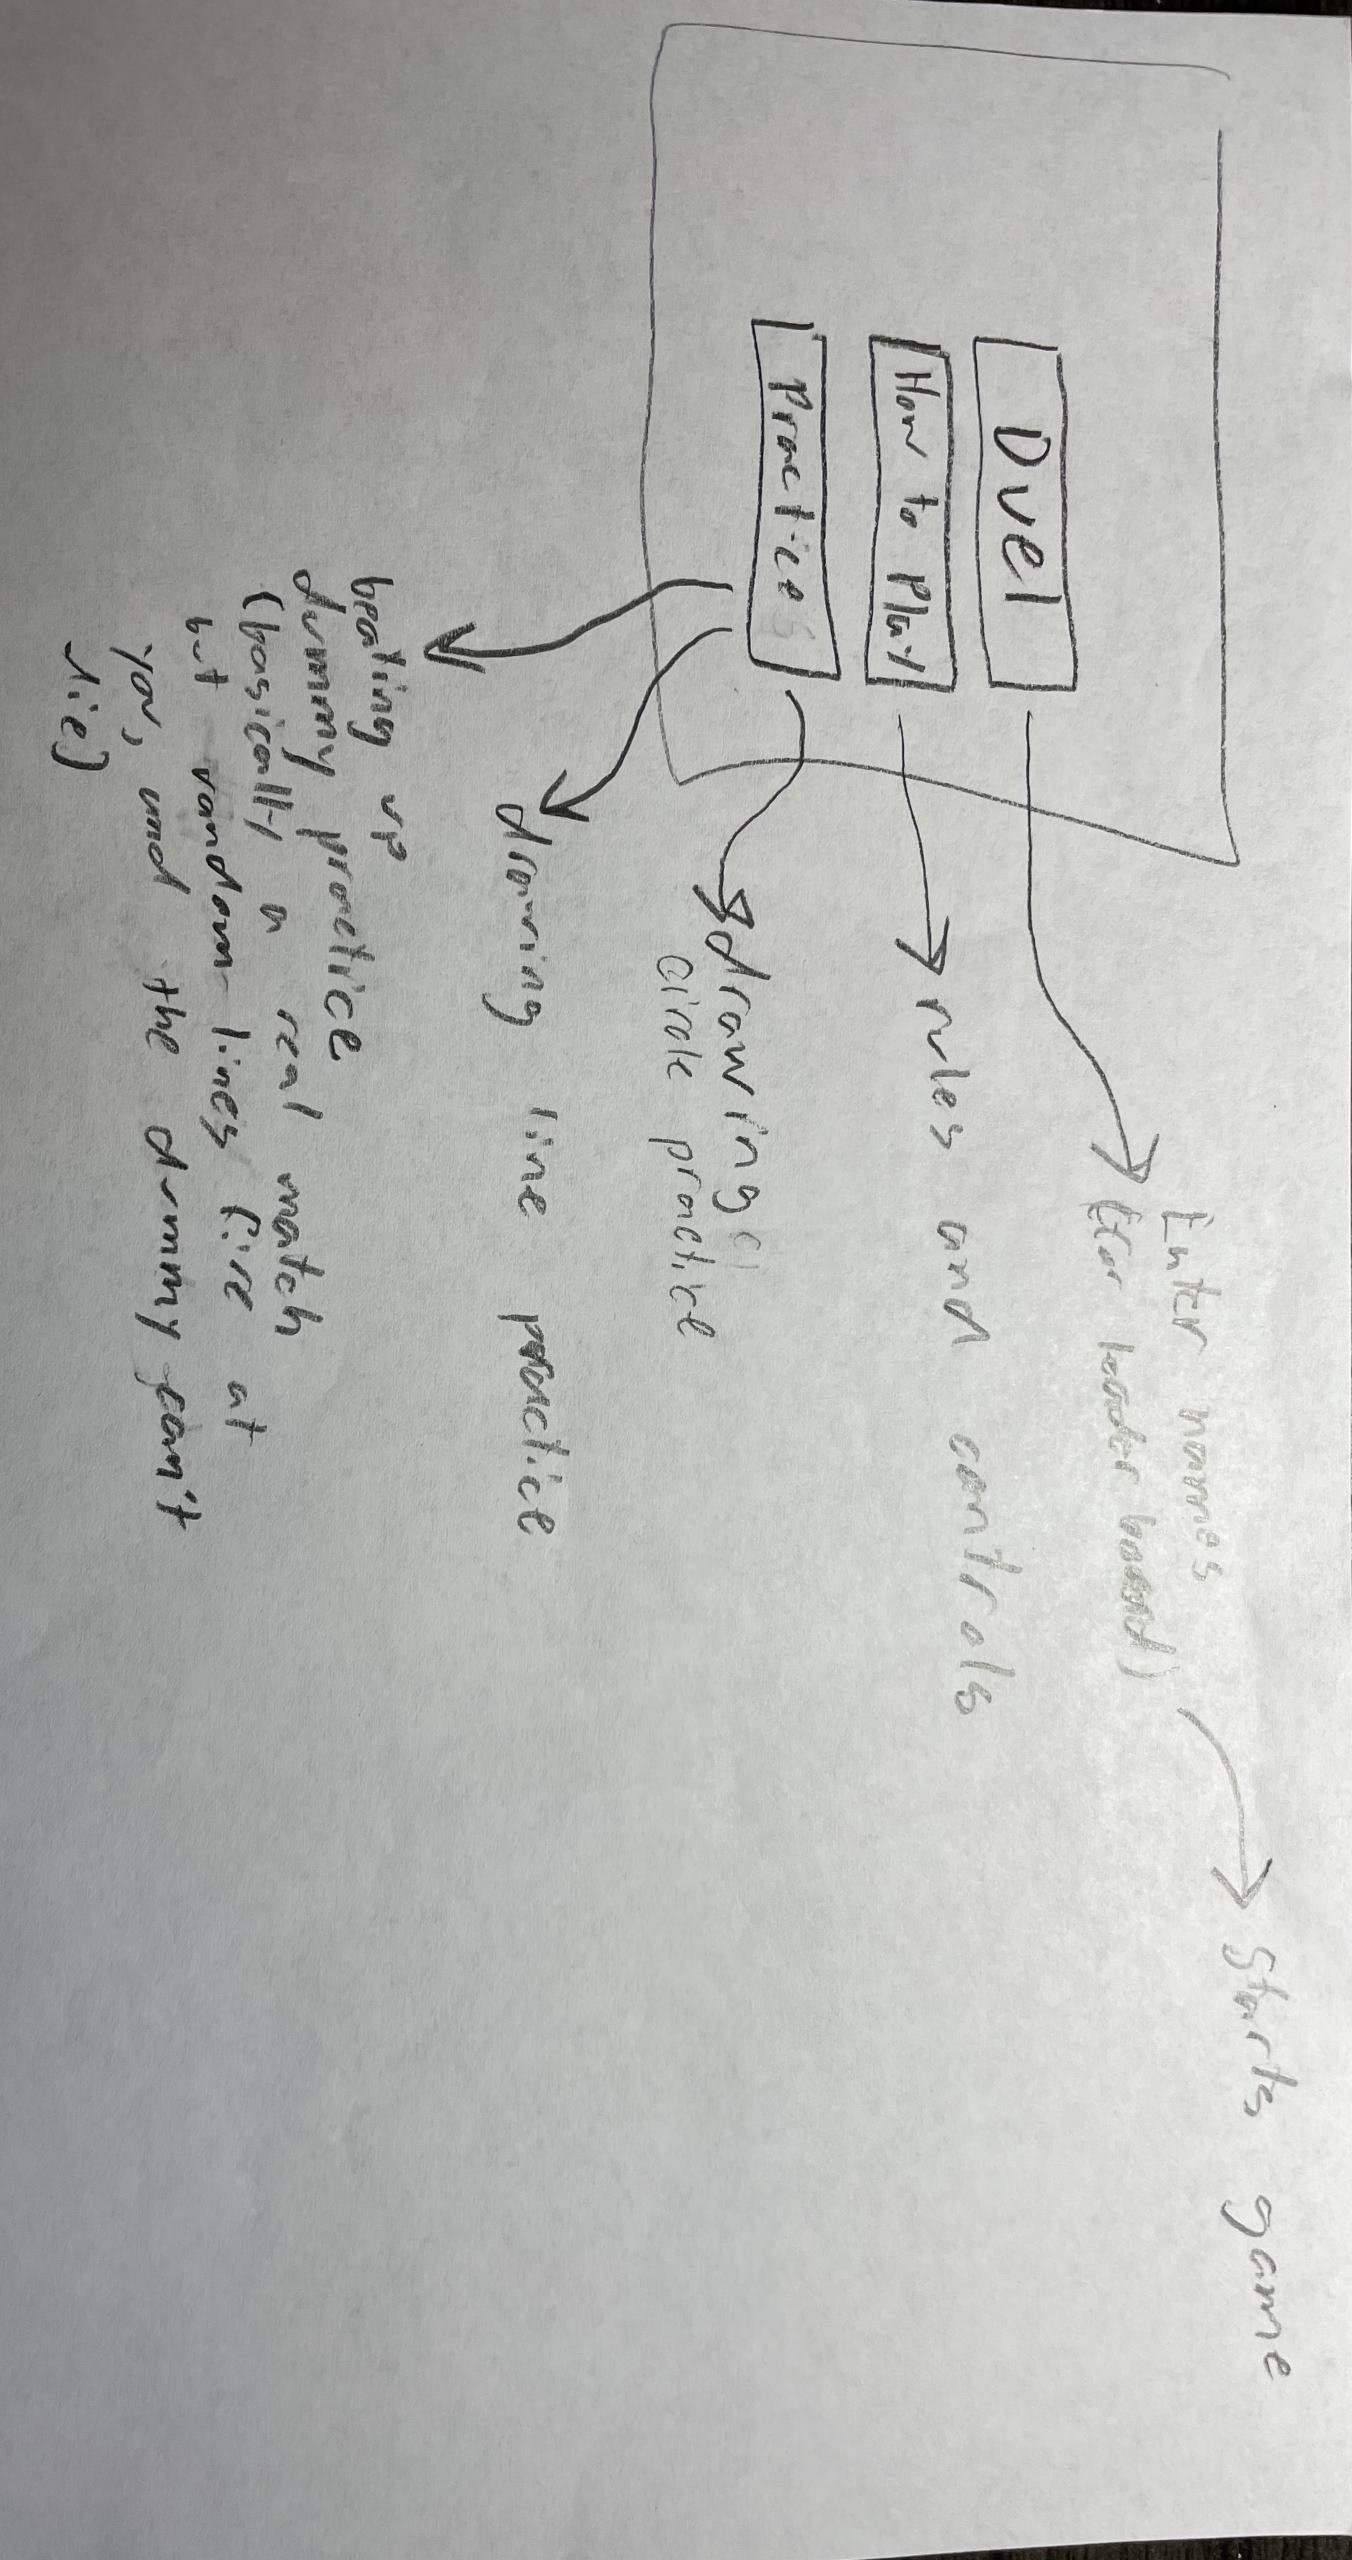 Duel
How to Play
Practice
Enter names
(for leader board)
starts game
rules and controls
drawing
circle practice
drawing line practice
beating up
dummy practice
(basically a real match
but random lines fire at
you, and the dummy can't
die)